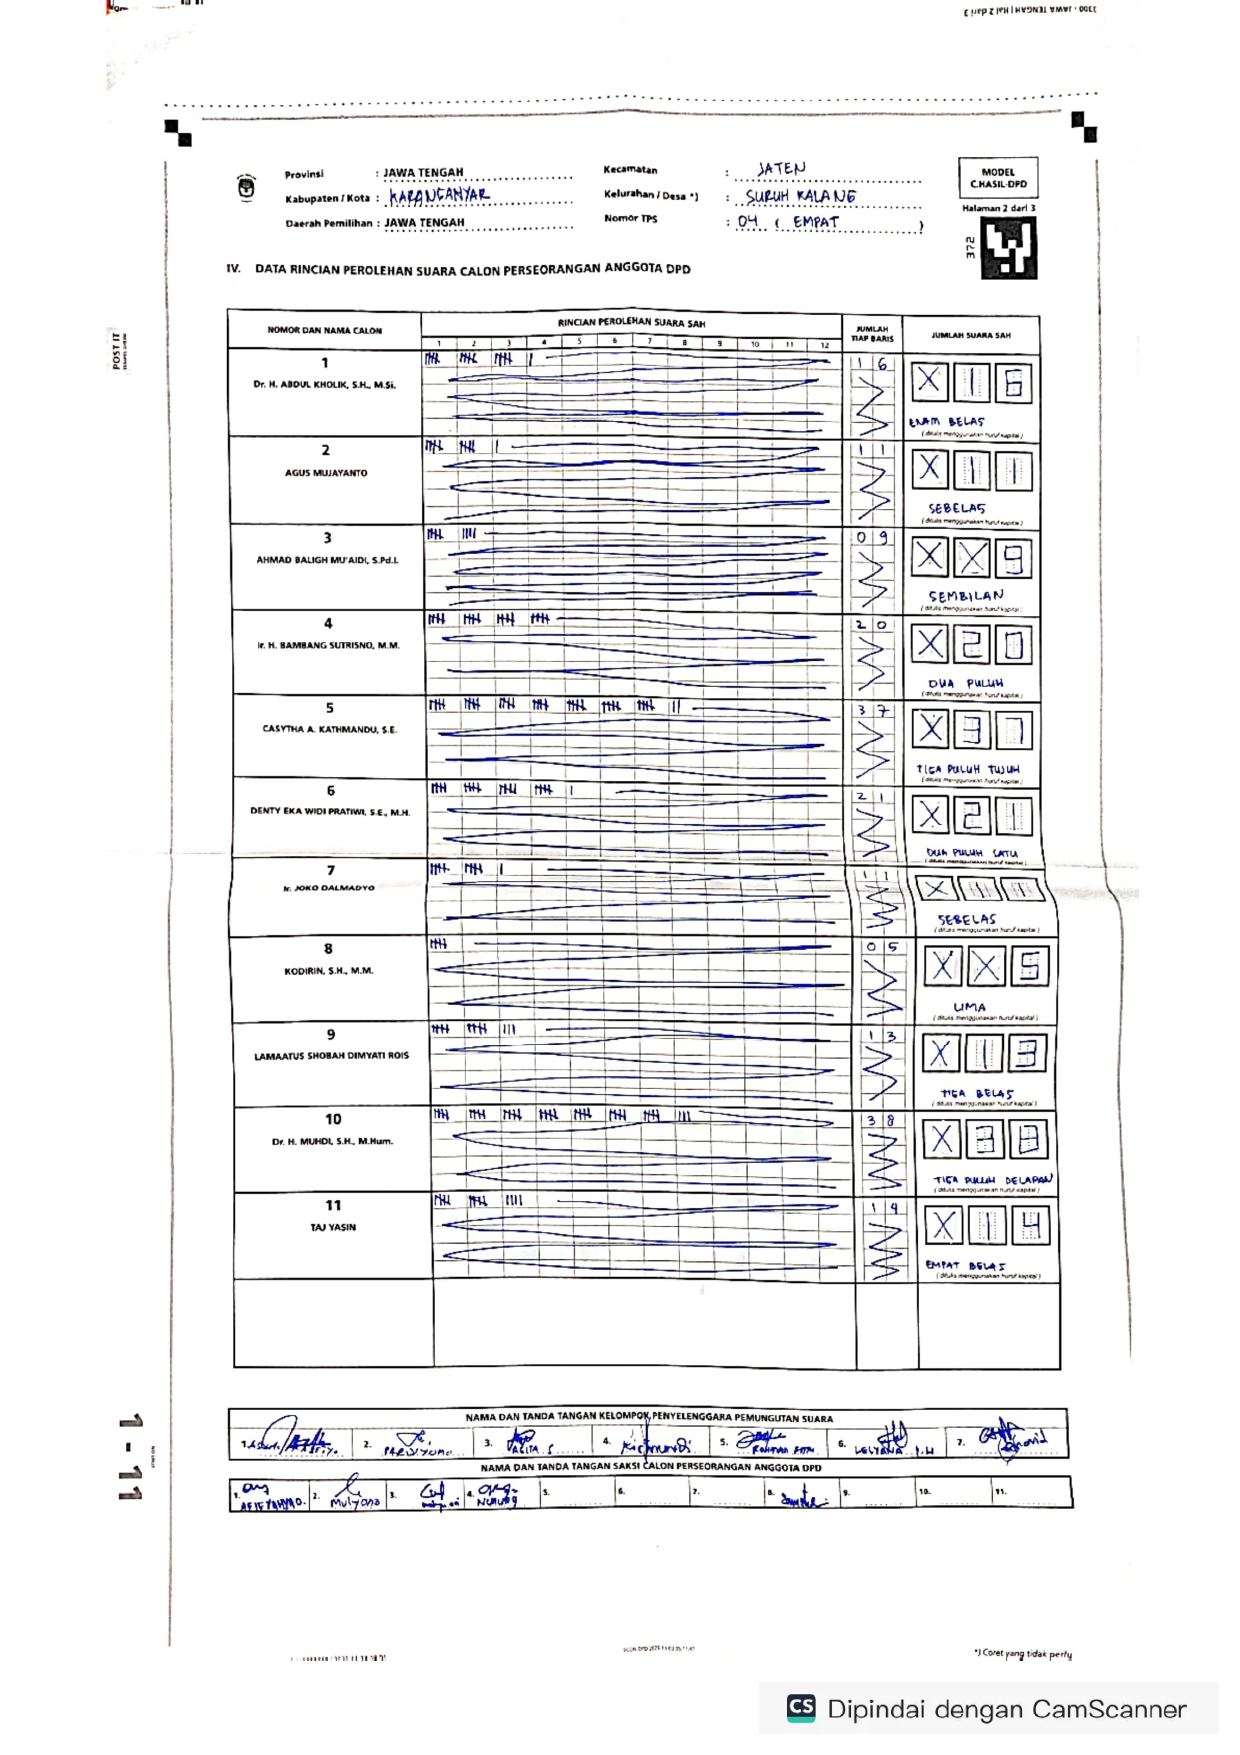 3300 - JAWA TENGAH | Hal 2 dari 3
Provinsi : JAWA TENGAH
Kabupaten / Kota : KARANGANYAR
Daerah Pemilihan : JAWA TENGAH
Kecamatan : JATEN
Kelurahan / Desa *) : SURUH KALANG
Nomor TPS : 04 ( EMPAT )
MODEL
C.HASIL-DPD
Halaman 2 dari 3
372
IV. DATA RINCIAN PEROLEHAN SUARA CALON PERSEORANGAN ANGGOTA DPD
NOMOR DAN NAMA CALON
RINCIAN PEROLEHAN SUARA SAH
1 2 3 4 5 6 7 8 9 10 11 12
JUMLAH
TIAP BARIS
JUMLAH SUARA SAH
1
Dr. H. ABDUL KHOLIK, S.H., M.Si.
1 6
X 1 6
ENAM BELAS
(ditulis menggunakan huruf kapital)
2
AGUS MUJAYANTO
1 1
X 1 1
SEBELAS
(ditulis menggunakan huruf kapital)
3
AHMAD BALIGH MU'AIDI, S.Pd.I.
0 9
X X 9
SEMBILAN
(ditulis menggunakan huruf kapital)
4
Ir. H. BAMBANG SUTRISNO, M.M.
2 0
X 2 0
DUA PULUH
(ditulis menggunakan huruf kapital)
5
CASYTHA A. KATHMANDU, S.E.
3 7
X 3 7
TIGA PULUH TUJUH
(ditulis menggunakan huruf kapital)
6
DENTY EKA WIDI PRATIWI, S.E., M.H.
2 1
X 2 1
DUA PULUH SATU
(ditulis menggunakan huruf kapital)
7
Ir. JOKO DALMADYO
1 1
X 1 1
SEBELAS
(ditulis menggunakan huruf kapital)
8
KODIRIN, S.H., M.M.
0 5
X X 5
LIMA
(ditulis menggunakan huruf kapital)
9
LAMAATUS SHOBAH DIMYATI ROIS
1 3
X 1 3
TIGA BELAS
(ditulis menggunakan huruf kapital)
10
Dr. H. MUHDI, S.H., M.Hum.
3 8
X 3 8
TIGA PULUH DELAPAN
(ditulis menggunakan huruf kapital)
11
TAJ YASIN
1 4
X 1 4
EMPAT BELAS
(ditulis menggunakan huruf kapital)
NAMA DAN TANDA TANGAN KELOMPOK PENYELENGGARA PEMUNGUTAN SUARA
1. 2. PARSIYOMO 3. 4. 5. 6. 7.
NAMA DAN TANDA TANGAN SAKSI CALON PERSEORANGAN ANGGOTA DPD
1. 2. Mulyono 3. 4. NUNUNG 5. 6. 7. 8. 9. 10. 11.
POST IT
1 - 11
*) Coret yang tidak perlu
CS Dipindai dengan CamScanner